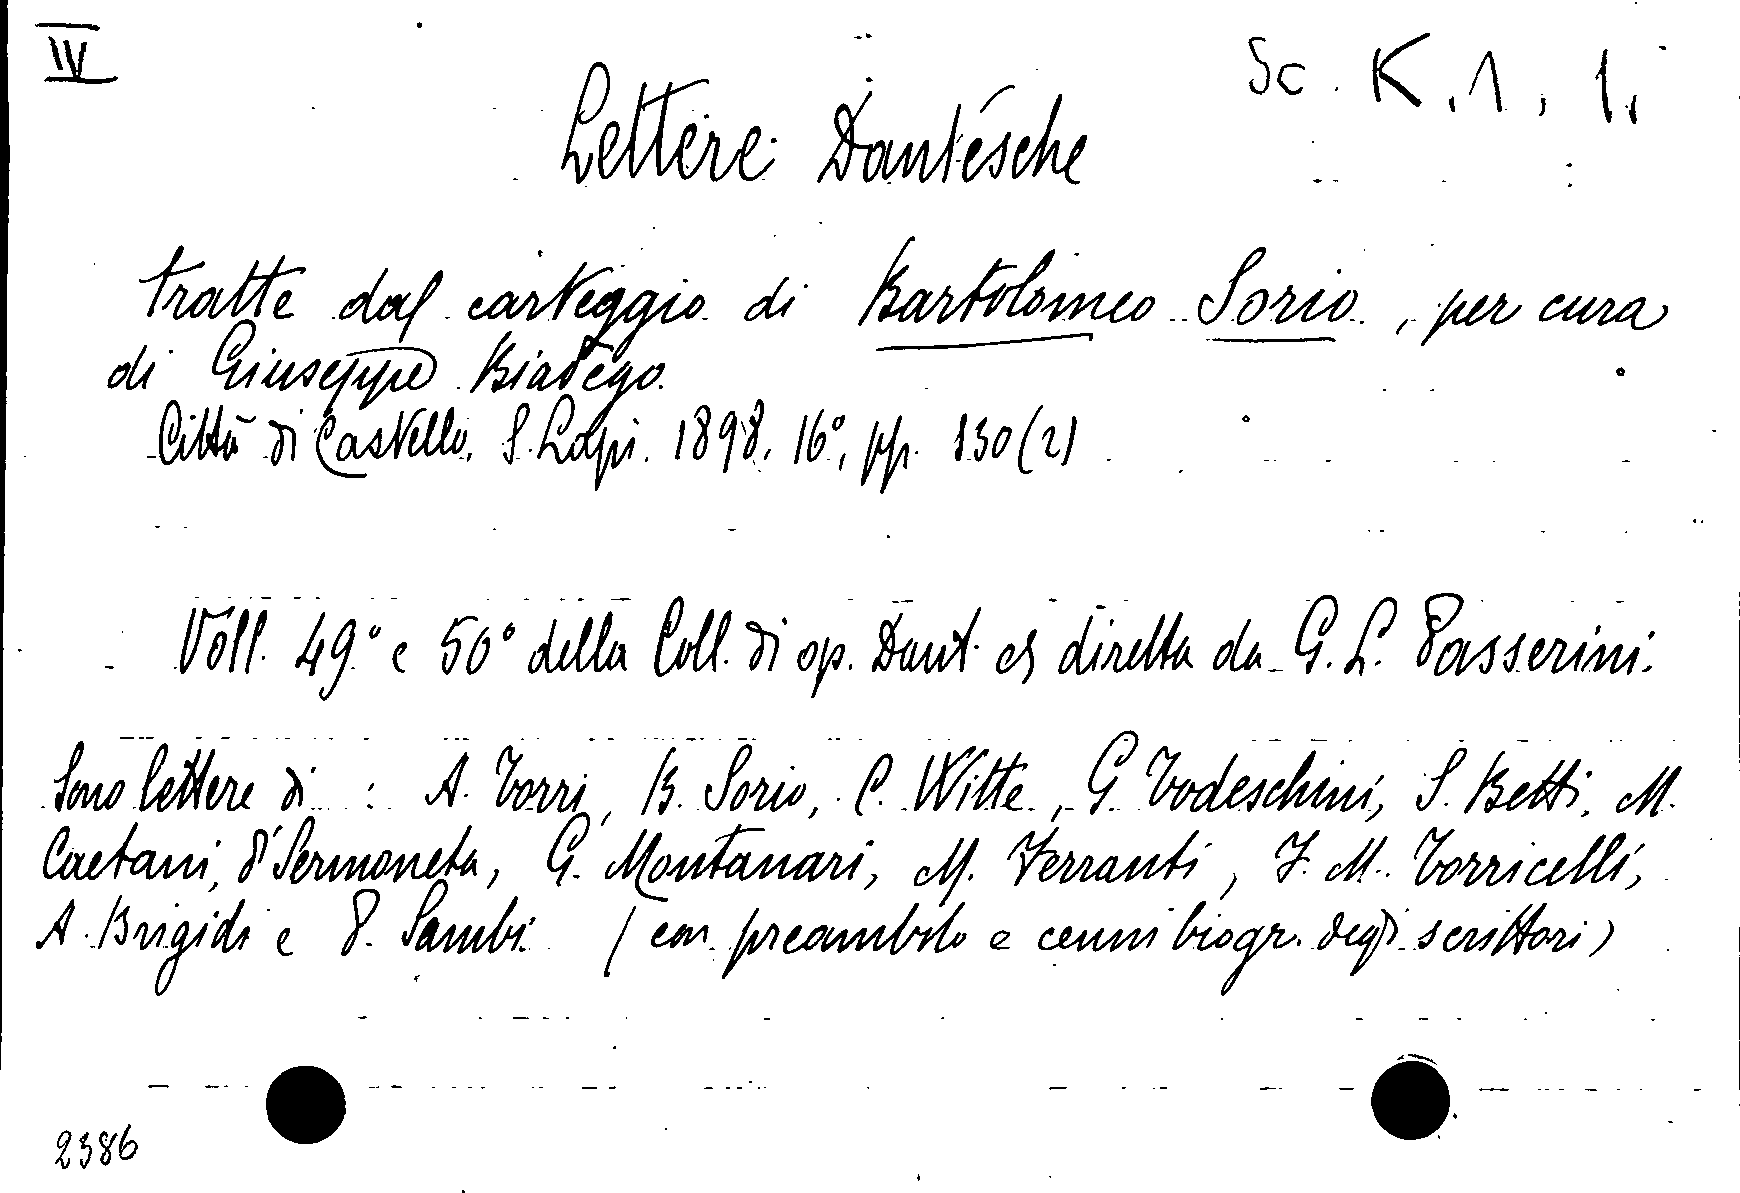 IV
Sc. K.1, 1,
Lettere Dantesche
tratte dal carteggio di Bartolomeo Sorio, per cura
di Giuseppe Biadego.
Città di Castello, S. Lapi. 1898, 16°, pp. 130(2)
Voll. 49° e 50° della Coll. di op. Dant. diretta da G. L. Passerini.
Sono lettere di : A. Torri, B. Sorio, C. Witte, G Todeschini, S. Betti, M.
Caetani, d'Sermoneta, G. Montanari, M. Ferranti, F. M. Torricelli,
A. Brigidi e P. Sambi. (con preambolo e cenni biogr. degli scrittori)
2386